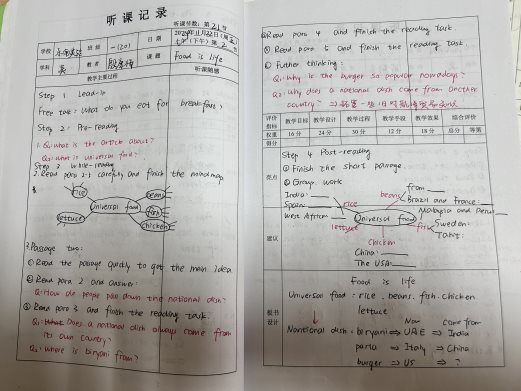 听课记录
听课节数: 第 21 节
学校
班级
一(20)
日期
2024年11月22日(周五)
(下午) 第 2 节
学科
英
教者
课题
Food is life
教学主要过程
听课随感
Step 1 Lead-in
Free talk: What do you eat for breakfast?
Step 2: Pre-reading
1. Q1: what is the article about?
Q2: what is universal food?
Step 3 While-reading
2. Read para 2-3 carefully and finish the mindmap
rice
beans
Universal food
fish
lettuce
chicken
2. Passage two:
① Read the passage quickly to get the main idea
② Read para 2 and answer:
Q: How do people pass down the national dish?
③ Read para 3 and finish the reading task.
Q1: Does a national dish always come from
its own country?
Q2: where is biryani from?
④ Read para 4 and finish the reading task.
⑤ Read para 5 and finish the reading task.
⑥ Futher thinking:
Q1: Why is the burger so popular nowadays?
Q2: Why does a national dish come from another
country?
评价指标
教学目标
教学设计
教学过程
教学手段
教学效果
综合评价
权重
16 分
24 分
30 分
12 分
18 分
总分
等第
得分
亮点
Step 4 Post-reading
① Finish the short passage.
② Group work
India:
Spain:
West African
rice
beans
from
Brazil and France:
Malaysia and Peru:
Universal food
lettuce
fish
Sweden:
Tahiti:
chicken
China:
The USA:
建议
板书设计
Food is life
Universal food: rice. beans. fish. chicken.
lettuce
Now
Come from
Nantional dish:
biryani ⇒ UAE ⇒ India
pasta ⇒ Italy ⇒ China
burger ⇒ US ⇒ ?